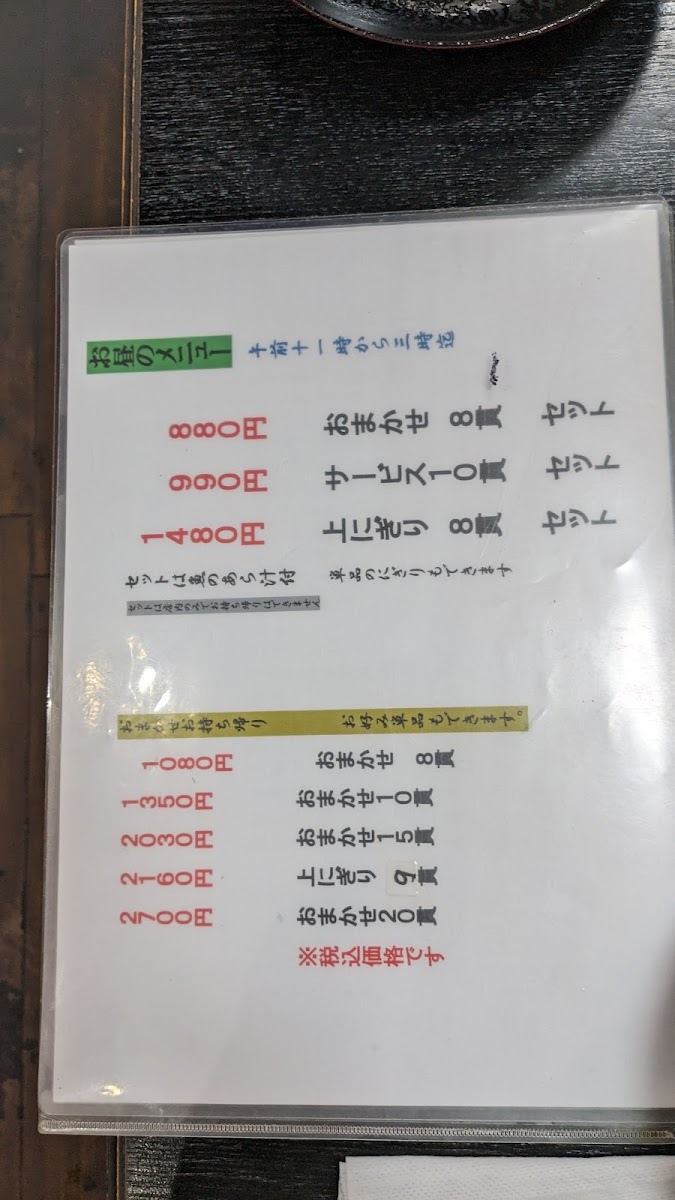 お昼のメニュー 午前十一時から三時迄
880円 おまかせ 8貫 セット
990円 サービス10貫 セット
1480円 上にぎり 8貫 セット
セットは魚のあら汁付 単品のにぎりもできます
セットは店内のみでお持ち帰りはできません
おまかせお持ち帰り お好み単品もできます。
1080円 おまかせ 8貫
1350円 おまかせ10貫
2030円 おまかせ15貫
2160円 上にぎり 9貫
2700円 おまかせ20貫
※税込価格です